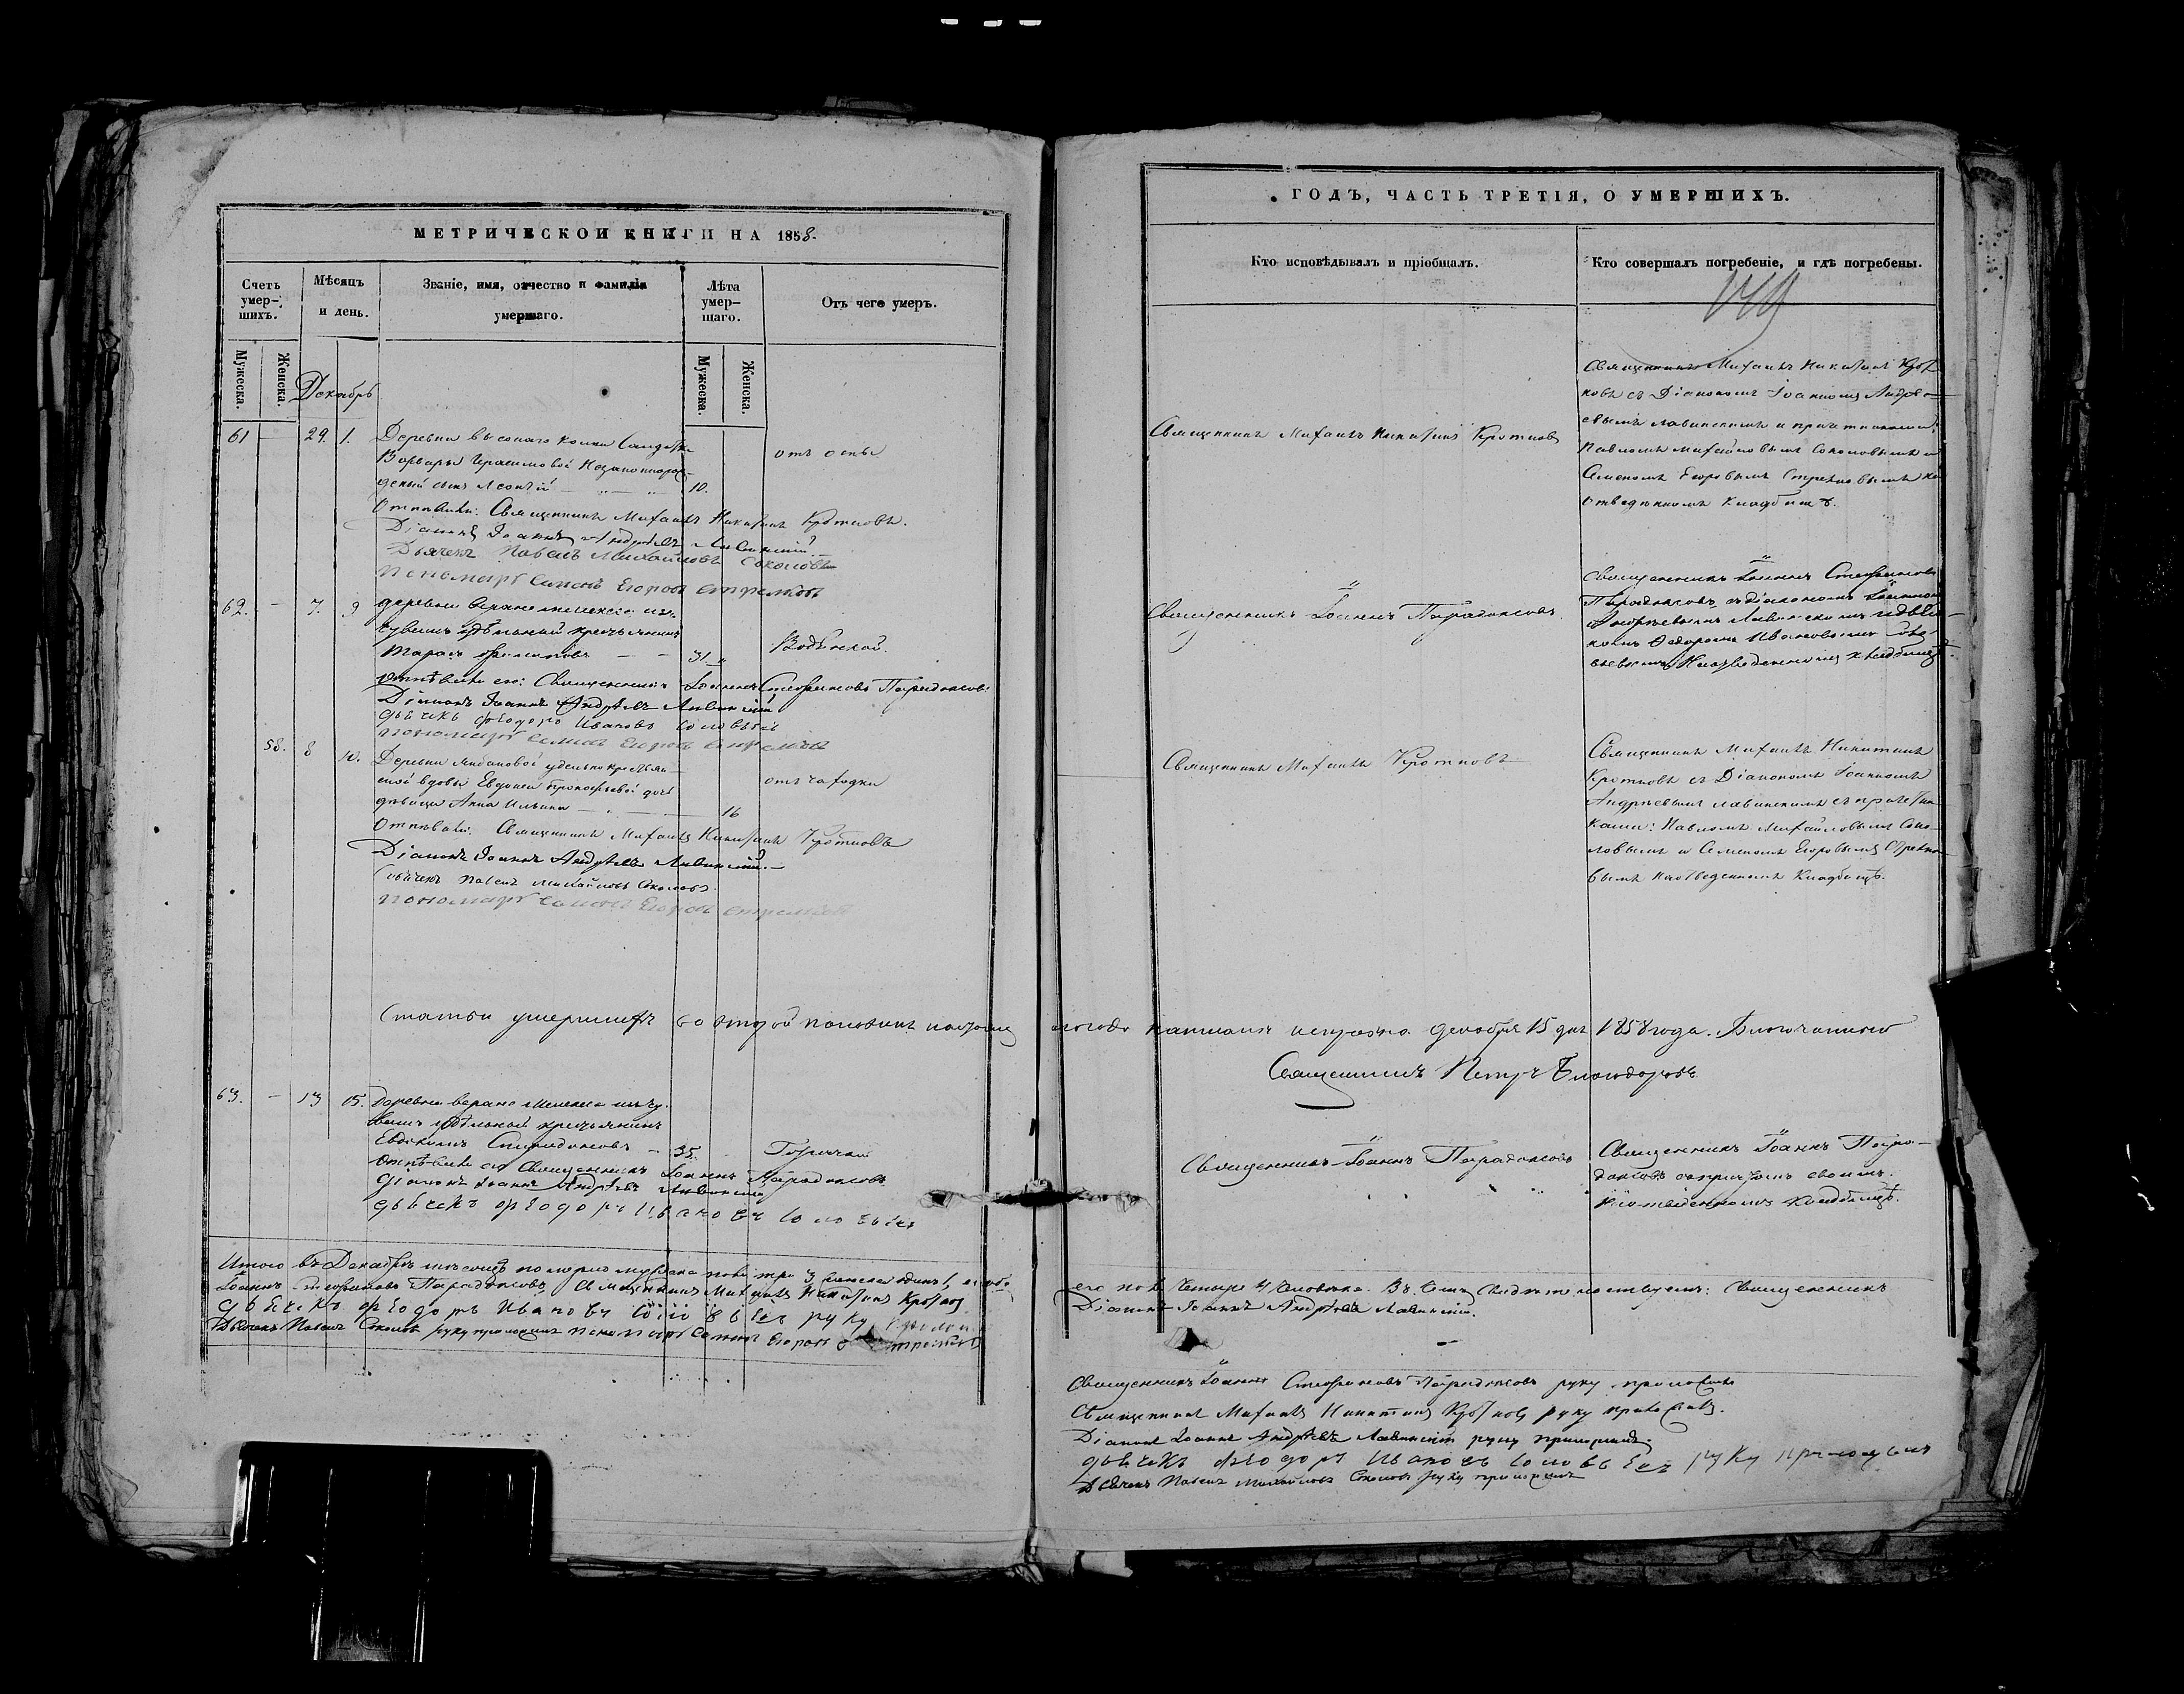 МЕТРИЧЕСКОЙ КНИГИ НА 1858.
Счетъ умер-шихъ.
Мужеска.
Женска.
Мѣсяцъ и день.
Званіе, имя, отчество и фамилія умершаго.
Лѣта умер-шаго.
Мужеска.
Женска.
Отъ чего умеръ.
Декабрь
61 — 29. 1. Деревни
Варвары Герасимовой
сынъ 10.
отъ оспы
Отпѣвали: Священникъ Михаилъ Никитинъ Кротковъ.
Діаконъ Іоаннъ Андреевъ Лавинскій
Дьячекъ Павелъ Михайловъ Соколовъ
пономарь Семенъ Егоровъ Стрелковъ
62. — 7. 9 деревни
удѣльный крестьянинъ
Тарасъ 31
Водяной.
отпѣвали его: Священникъ Іоаннъ Стефановъ Парадоксовъ
Діаконъ Іоаннъ Андреевъ Лавинскій
дьячекъ Феодоръ Ивановъ Соловьевъ
пономарь Семенъ Егоровъ Стрелковъ
58. 8 10. Деревни
вдовы Евдокіи Прокофьевой дочь
дѣвица Анна Ильина 16
отъ чахотки
Отпѣвали: Священникъ Михаилъ Никитинъ Кротковъ
Діаконъ Іоаннъ Андреевъ Лавинскій.
Дьячекъ Павелъ Михайловъ Соколовъ.
пономарь Семенъ Егоровъ Стрелковъ
Статьи умершихъ во второй половинѣ
63. — 13 15. Деревни
удѣльный крестьянинъ
Евдокимъ Спиридоновъ — 35.
Горячки
отпѣвали его Священникъ Іоаннъ Парадоксовъ
діаконъ Іоаннъ Андреевъ Лавинскій
дьячекъ Феодоръ Ивановъ Соловьевъ
Итого въ Декабрѣ мѣсяцѣ померло мужеска пола три 3 женска одинъ 1, а обо-
Іоаннъ Стефановъ Парадоксовъ. Священникъ Михаилъ Никитинъ Кротковъ
дьячекъ Феодоръ Ивановъ Соловьевъ руку
Дьячекъ Павелъ Соколовъ руку приложилъ пономарь Семенъ Егоровъ Стрелковъ
ГОДЪ, ЧАСТЬ ТРЕТІЯ, О УМЕРШИХЪ.
Кто исповѣдывалъ и пріобщалъ.
Кто совершалъ погребеніе, и гдѣ погребены.
Священникъ Михаилъ Никитинъ Кротковъ
Священникъ Михаилъ Никитинъ Крот-
ковъ съ Діакономъ Іоанномъ Андре-
евымъ Лавинскимъ и причетниками
Павломъ Михайловымъ Соколовымъ и
Семеномъ Егоровымъ Стрелковымъ на
отведенномъ кладбищѣ.
Священникъ Іоаннъ Парадоксовъ.
Священникъ Іоаннъ Стефановъ
Парадоксовъ, съ діакономъ Іоанномъ
Андреевымъ Лавинскимъ и дьяч-
комъ Федоромъ Ивановымъ Соло-
вьевымъ на отведенномъ кладбищѣ.
Священникъ Михаилъ Кротковъ
Священникъ Михаилъ Никитинъ
Кротковъ съ Діакономъ Іоанномъ
Андреевымъ Лавинскимъ съ причетни-
ками: Павломъ Михайловымъ Соко-
ловымъ и Семеномъ Егоровымъ Стрелко-
вымъ на отведенномъ кладбищѣ.
декабря 15 дня 1858 года. Благочинный
Священникъ Петръ
Священникъ Іоаннъ Парадоксовъ
Священникъ Іоаннъ Пара-
доксовъ съ причтомъ своимъ.
на отведенномъ кладбищѣ.
его пола четыре 4 человѣка. Въ чемъ свидѣтельствуемъ: Священникъ
Діаконъ Іоаннъ Андреевъ Лавинскій.
Священникъ Іоаннъ Стефановъ Парадоксовъ руку приложилъ
Священникъ Михаилъ Никитинъ Кротковъ руку приложилъ.
Діаконъ Іоаннъ Андреевъ Лавинскій руку приложилъ.
дьячекъ Феодоръ Ивановъ Соловьевъ руку приложилъ
Дьячекъ Павелъ Михайловъ Соколовъ руку приложилъ